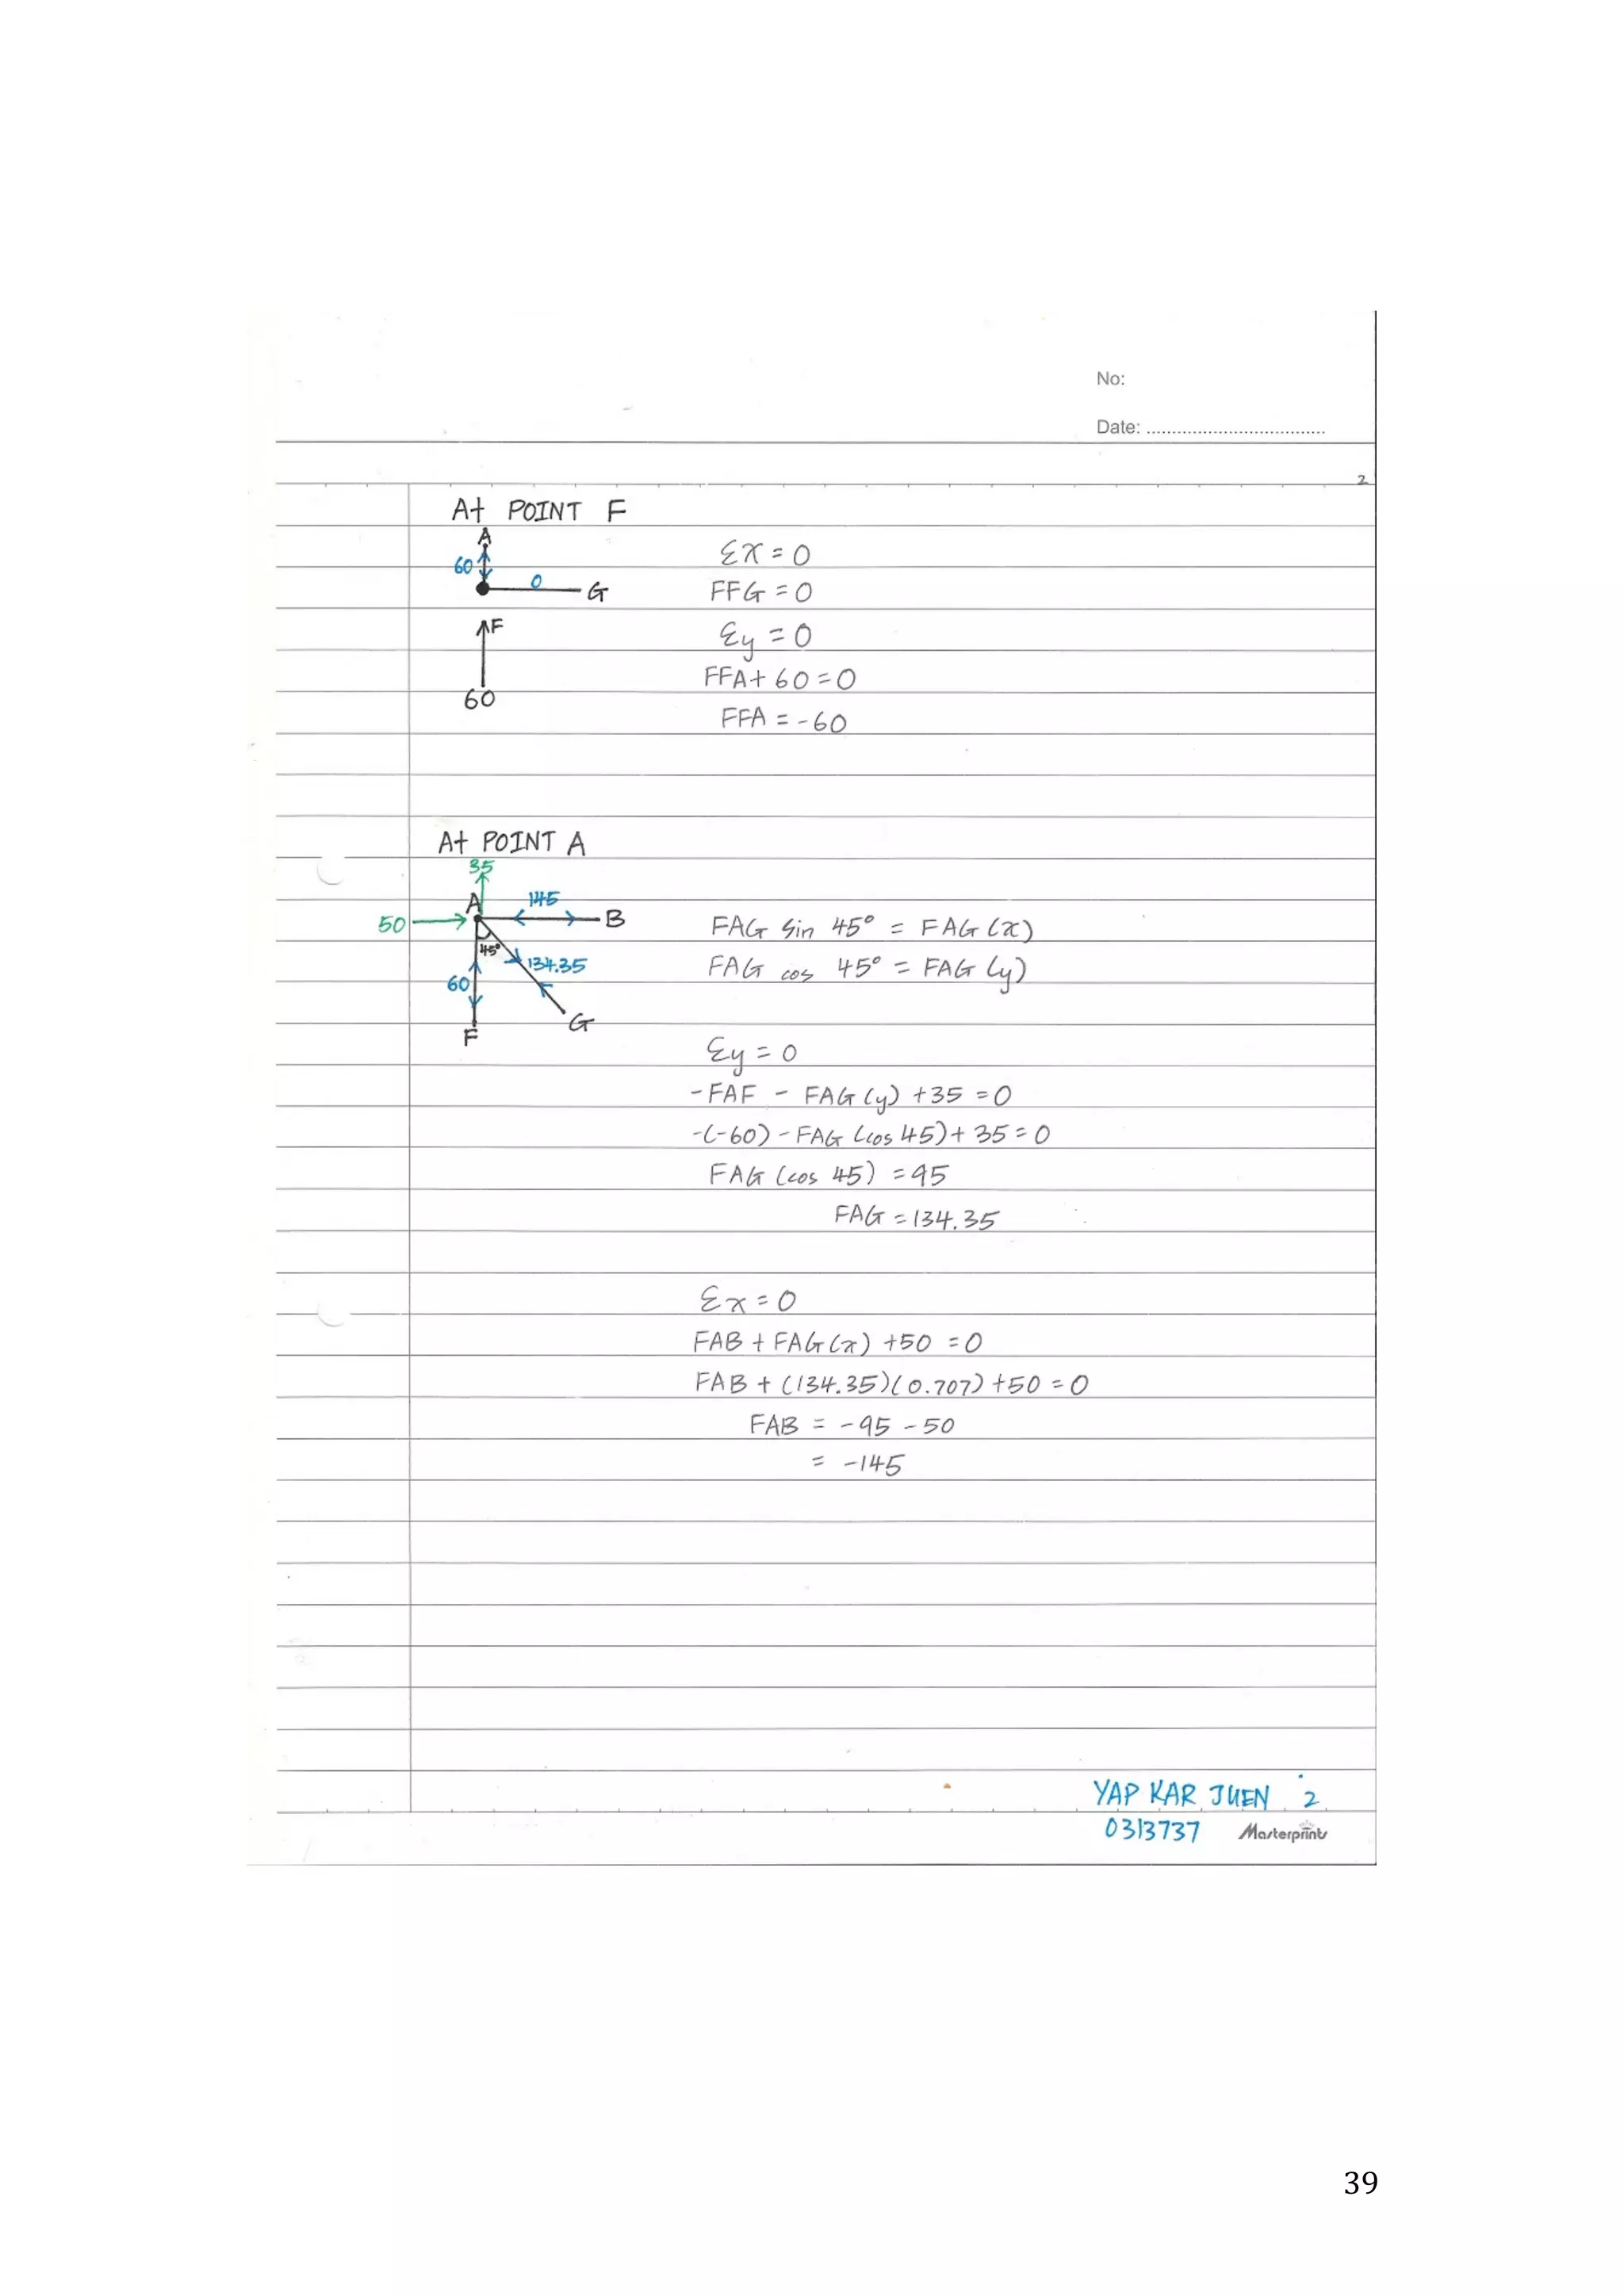 No:
Date: ..................................
2
At POINT F
A
60
0
G
F
60
Σx = 0
FFG = 0
Σy = 0
FFA + 60 = 0
FFA = -60
At POINT A
35
A
145
B
50
45°
134.35
60
F
G
FAG sin 45° = FAG (x)
FAG cos 45° = FAG (y)
Σy = 0
-FAF - FAG (y) +35 = 0
-(-60) - FAG (cos 45) + 35 = 0
FAG (cos 45) = 95
FAG = 134.35
Σx = 0
FAB + FAG (x) +50 = 0
FAB + (134.35)(0.707) +50 = 0
FAB = -95 - 50
= -145
YAP KAR JUEN 2
0313737 Masterprints
39